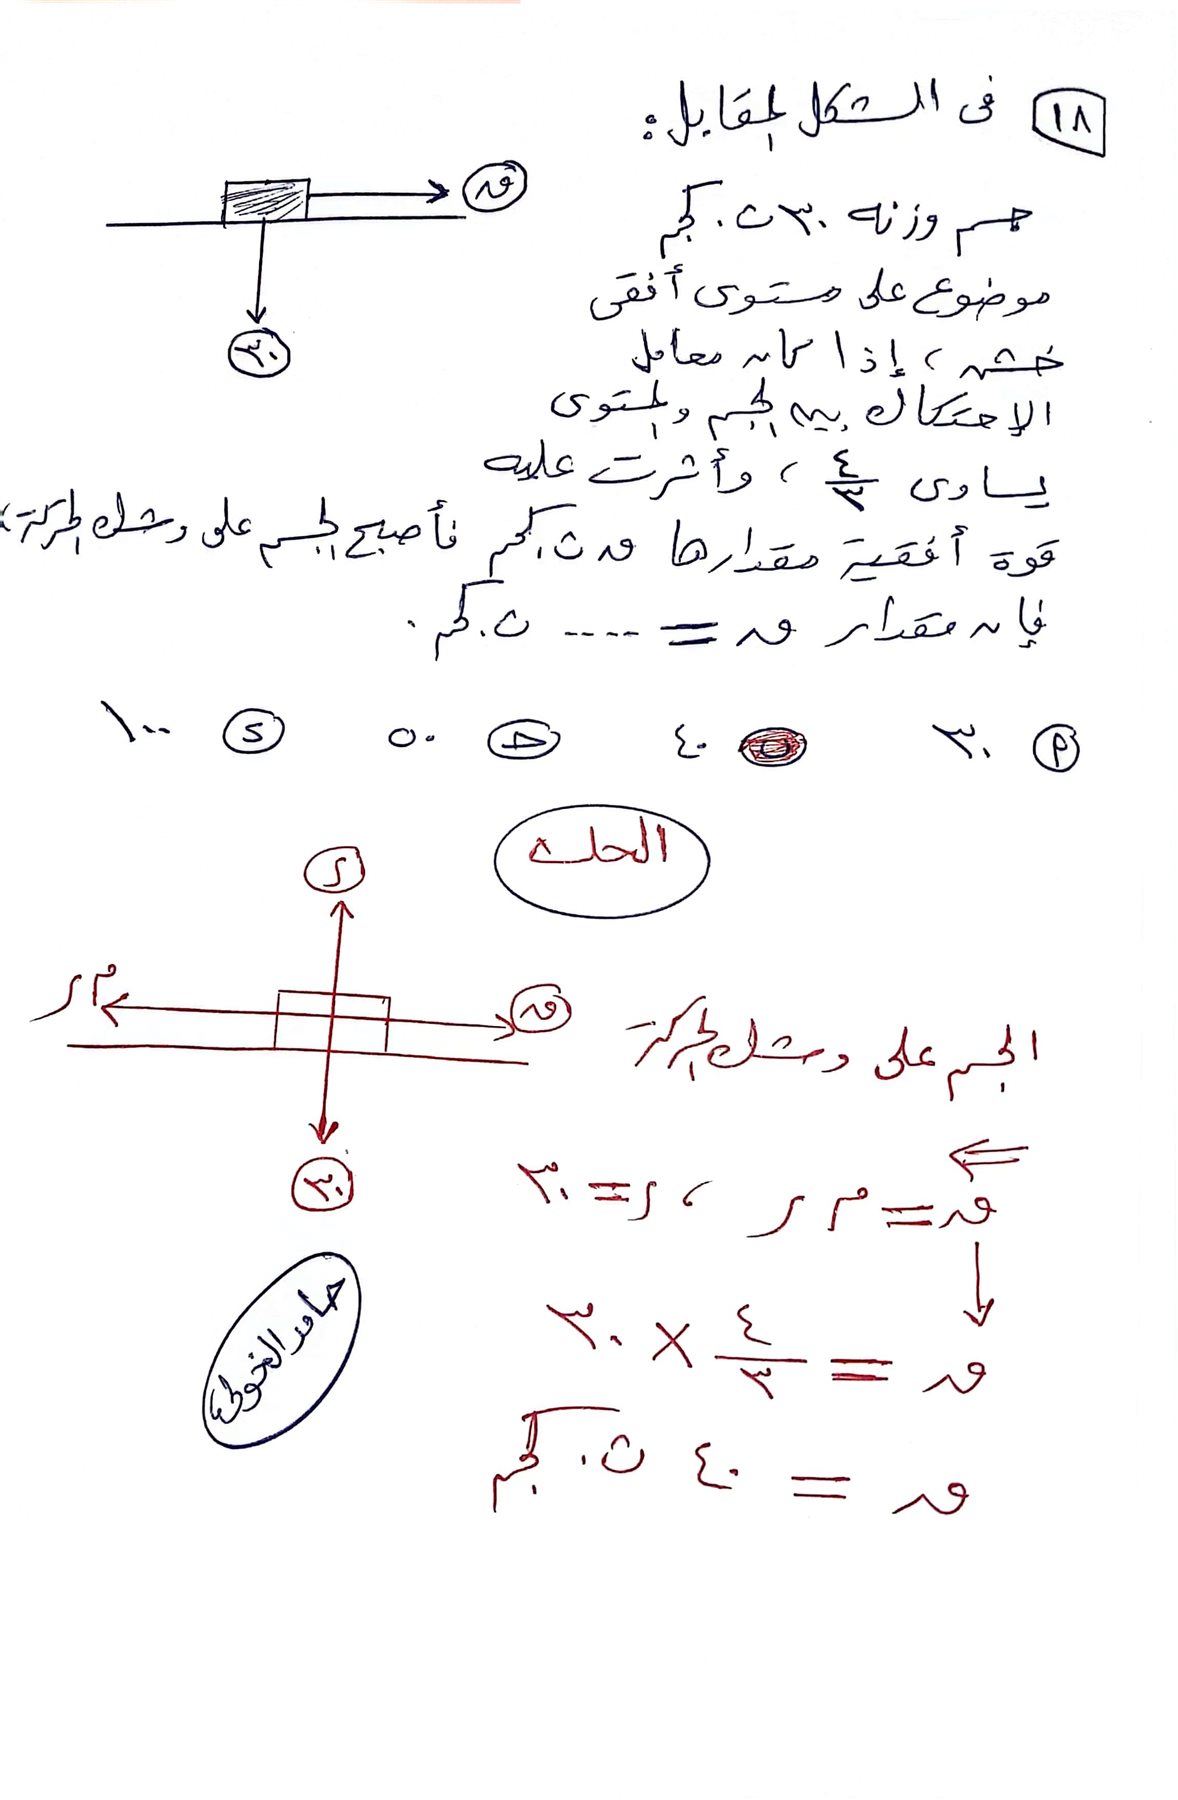 ١٨ فى الشكل المقابل:
جسم وزنه ٣٠ ث. كجم
موضوع على مستوى أفقى
خشن ، إذا كان معامل
الإحتكاك بين الجسم والمستوى
يساوى ٤/٣ ، وأثرت عليه
قوة أفقية مقدارها ق ث. كجم فأصبح الجسم على وشك الحركة ،
فإن مقدار ق = .... ث. كجم .
ق
٣٠
أ ٣٠ ب ٤٠ ج ٥٠ د ١٠٠
الحل
ر
م ر
ق
٣٠
الجسم على وشك الحركة
⇐
ق = م ر ، ر = ٣٠
ق = ٤/٣ × ٣٠
ق = ٤٠ ث. كجم
حامد الخولى